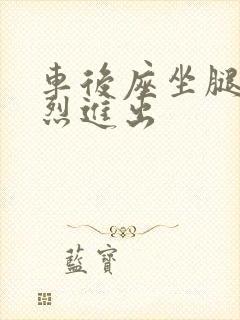 車後座坐腿
烈進出
藍寶